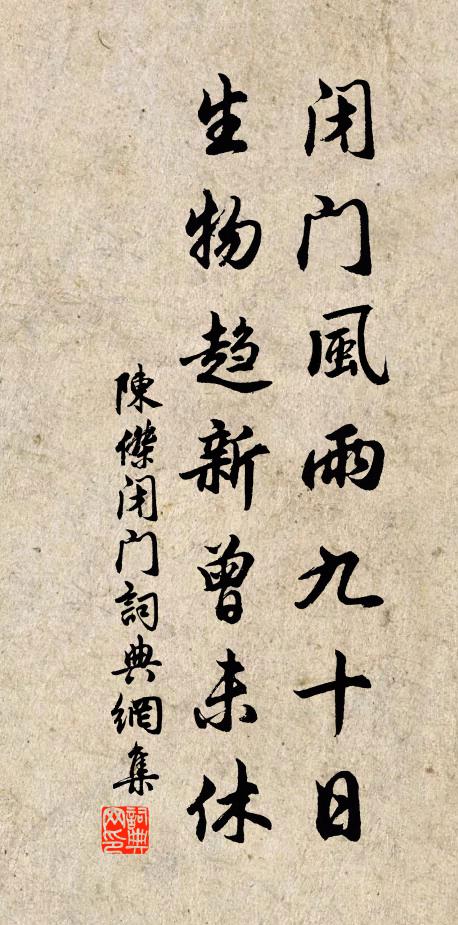 闭门風雨九十日
生物趋新曾未休
陳傑闭门詞典網集
詞典网印